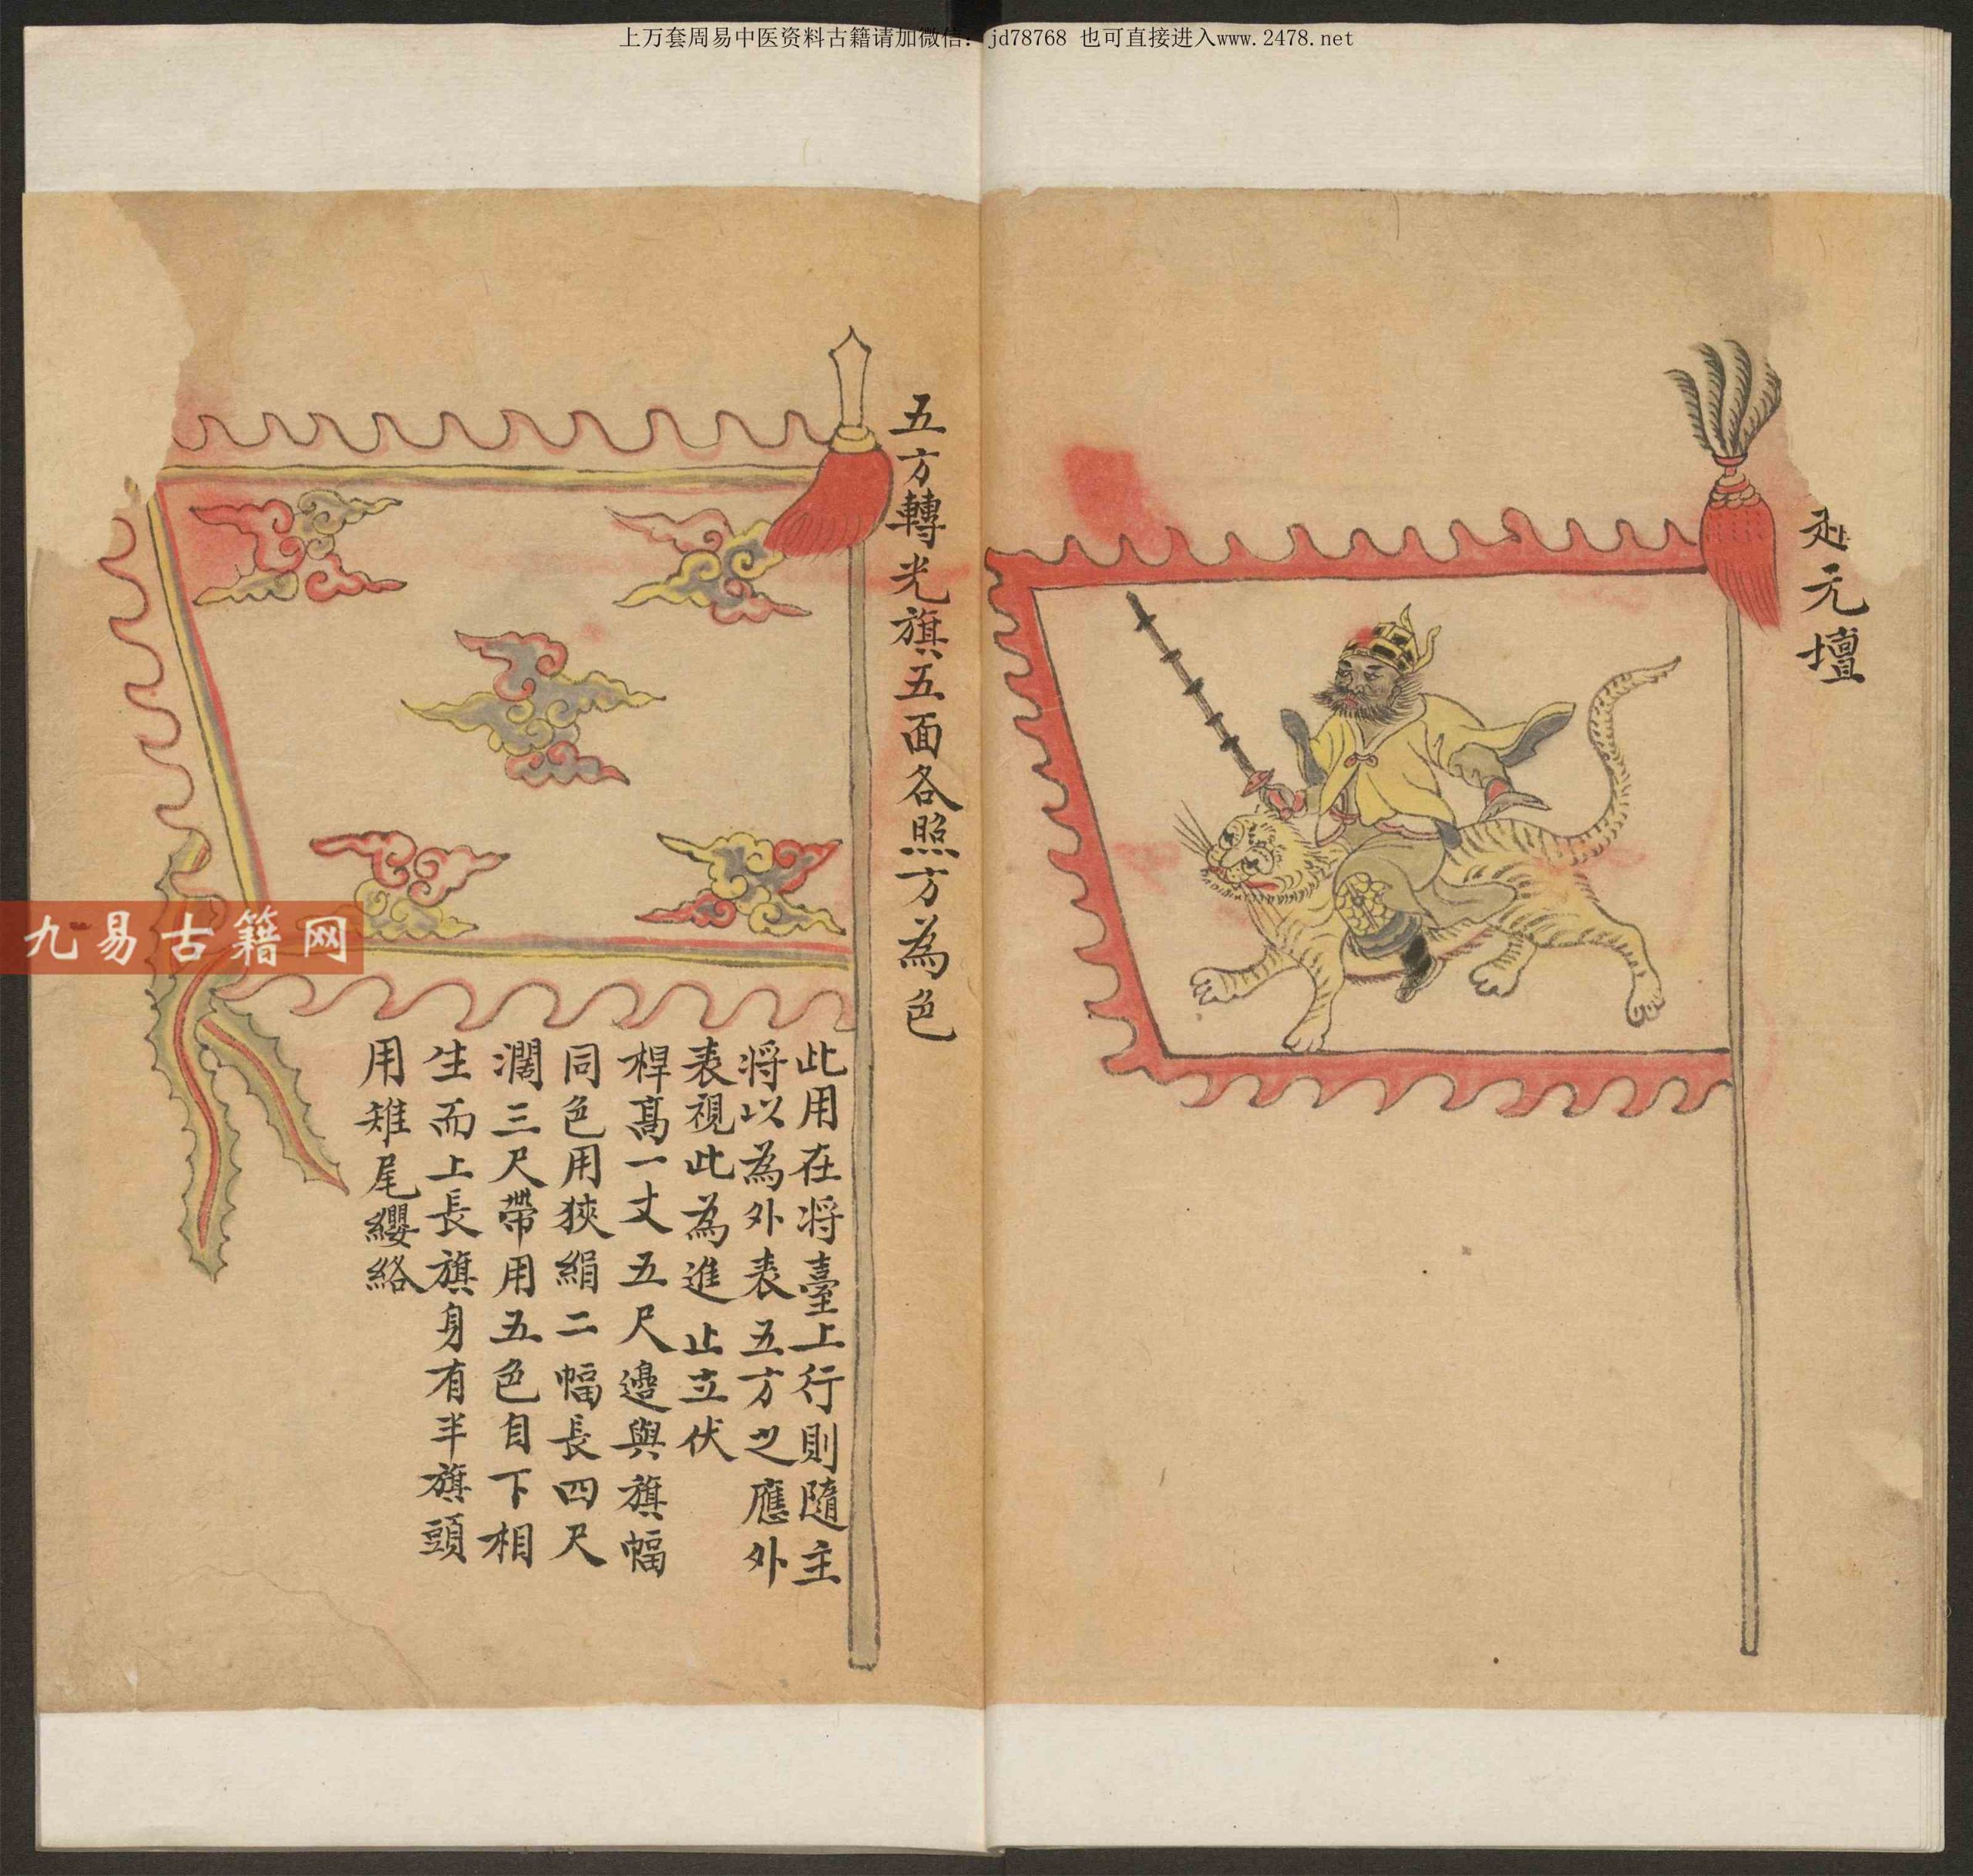 上万套周易中医资料古籍请加微信: jd78768 也可直接进入www.2478.net
元壇
五方轉光旗五面各照方為色
此用在将臺上行則隨主
将以為外表五方之應外
表視此為進止立伏
桿高一丈五尺邊與旗幅
同色用狹絹二幅長四尺
濶三尺帶用五色自下相
生而上長旗身有半旗頭
用雉尾纓絡
九易古籍网